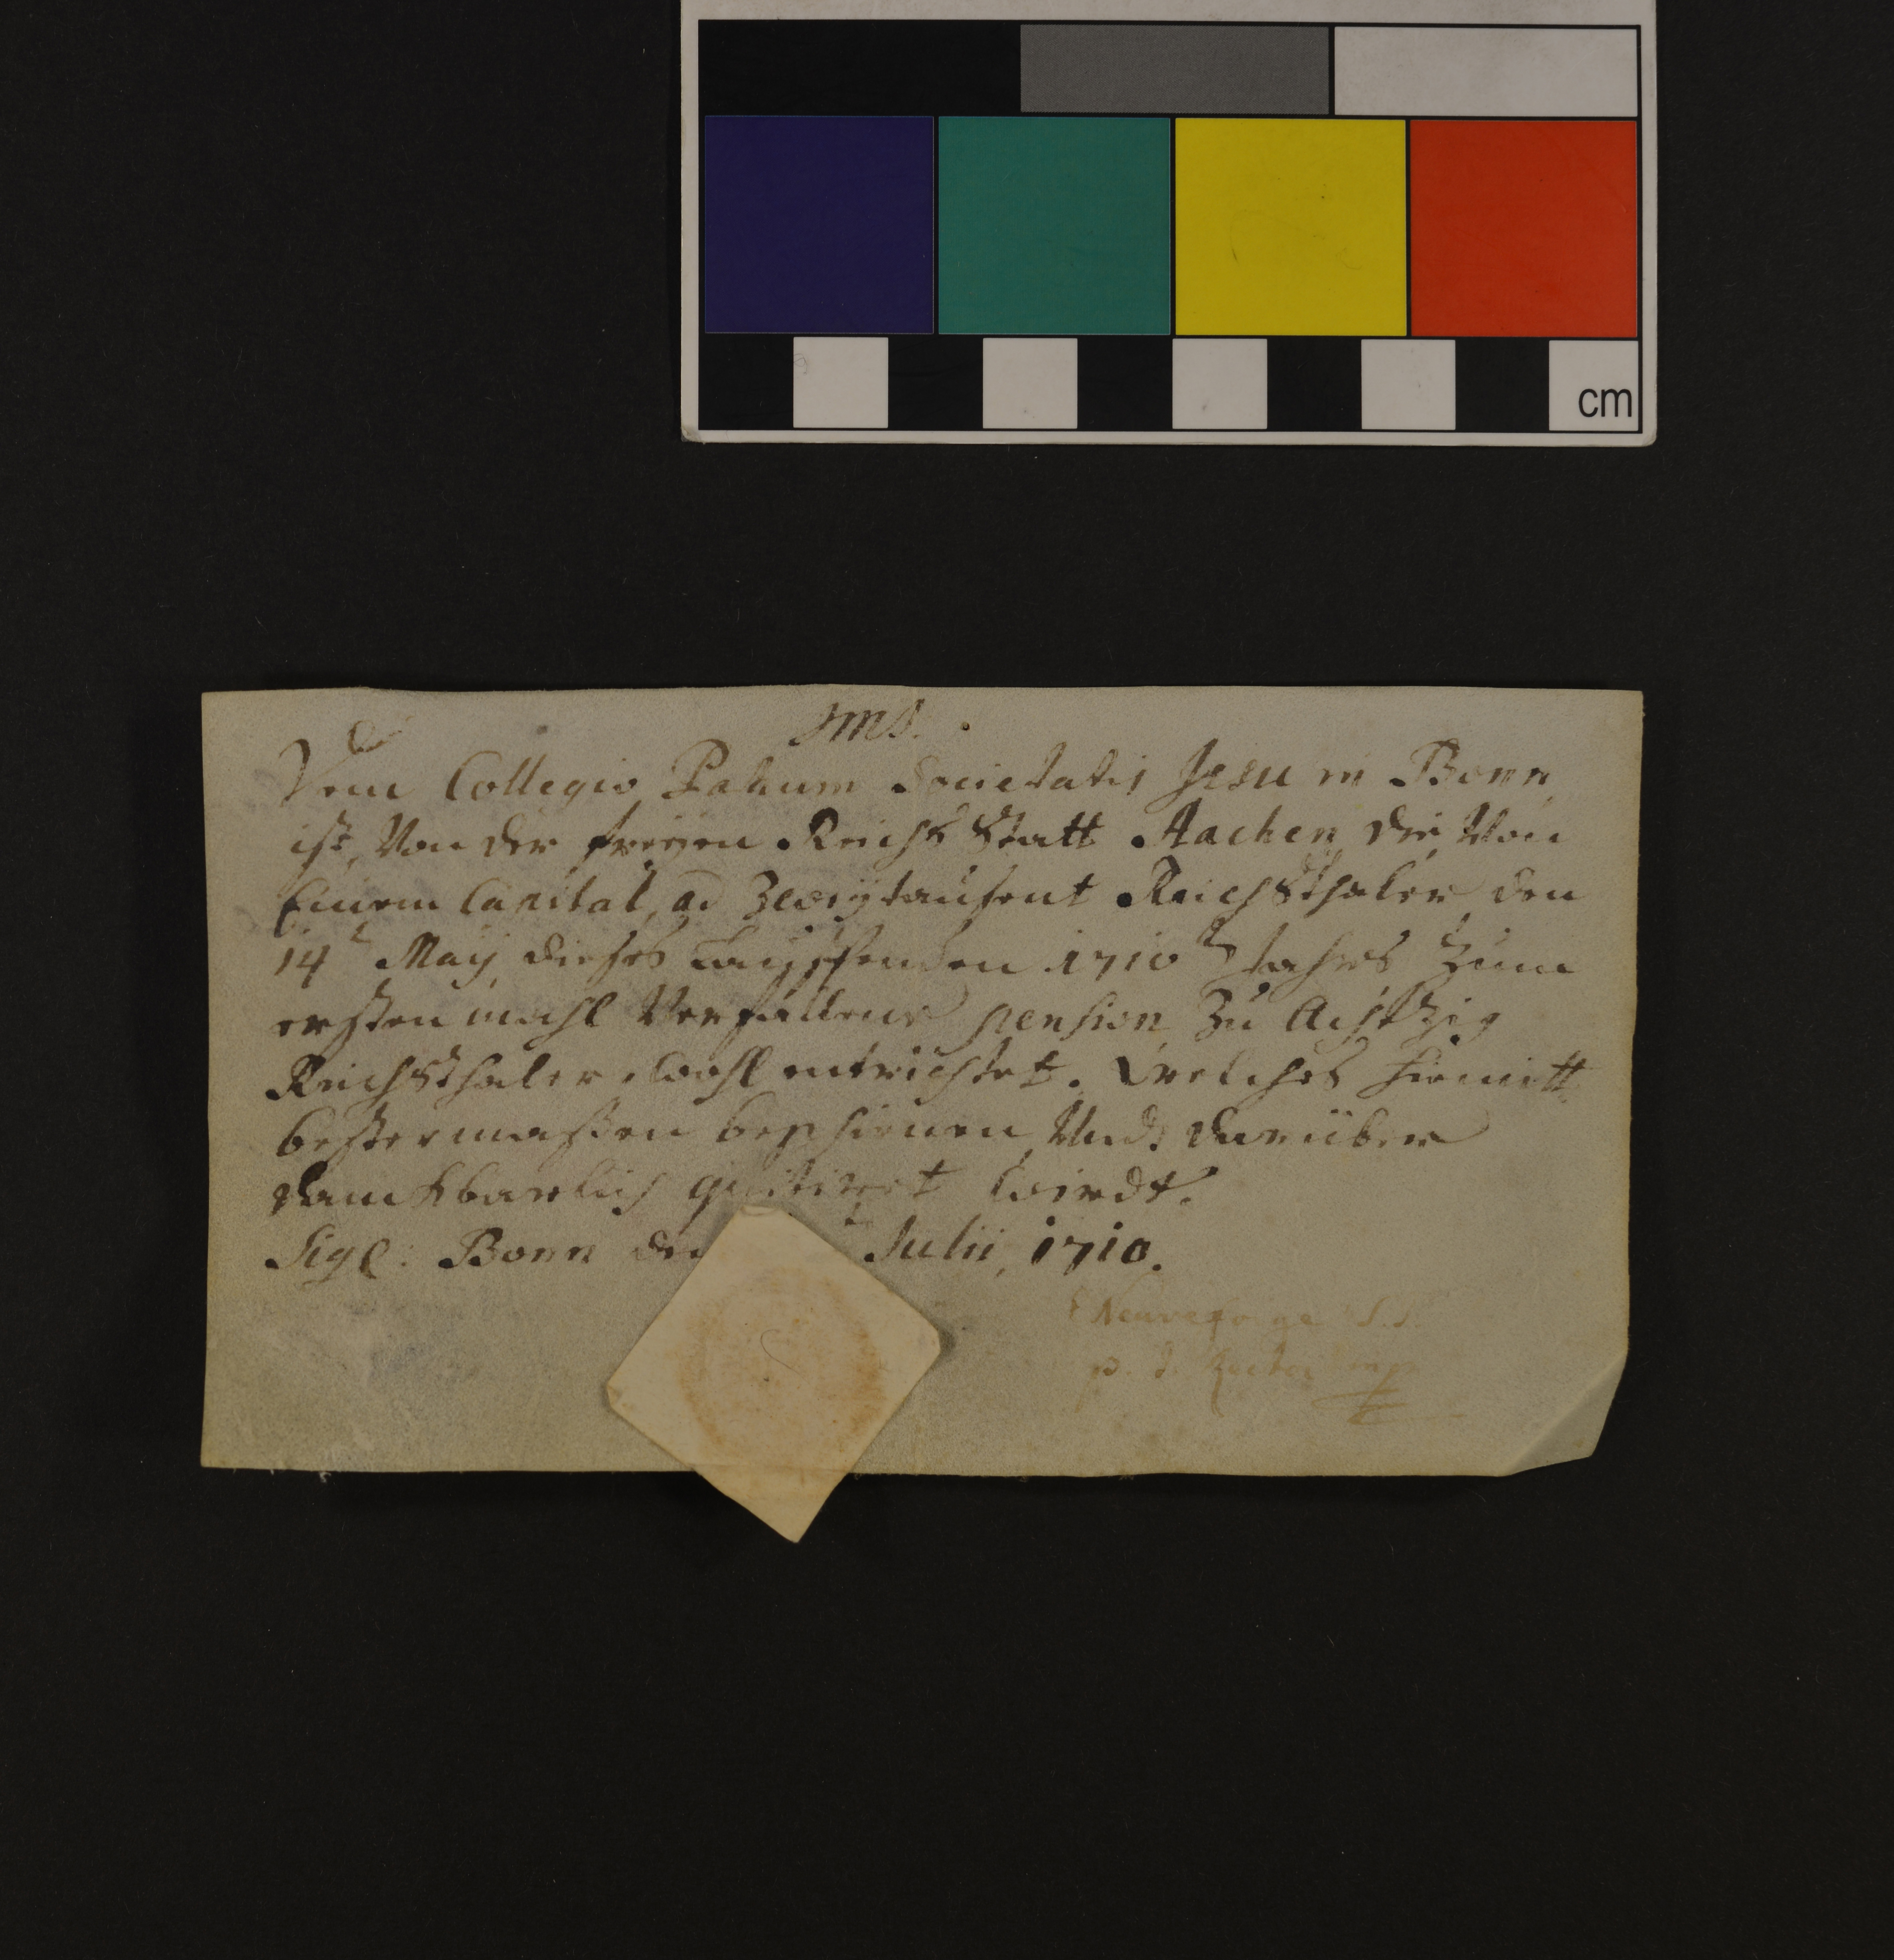 cm
JMS.
Dem Collegio Patrum Societatis Jesu in Bonn
ist, Von der freyen Reichs Statt Aachen, die Von
Einem Capital, ad Zweytausent Reichsthaler, den
14t May dieses lauffenden 1710t Jahrs Zum
ersten mahl Verfallene pension, Zu Achtzig
Reichsthaler wohl entrichtet. Welches hiemitt
bester massen bescheinen, Und darüber
danckbarlich quitiret wirdt.
Sigl: Bonn den Julii, 1710.
Neuveforge S.J.
p. t. Rector mp